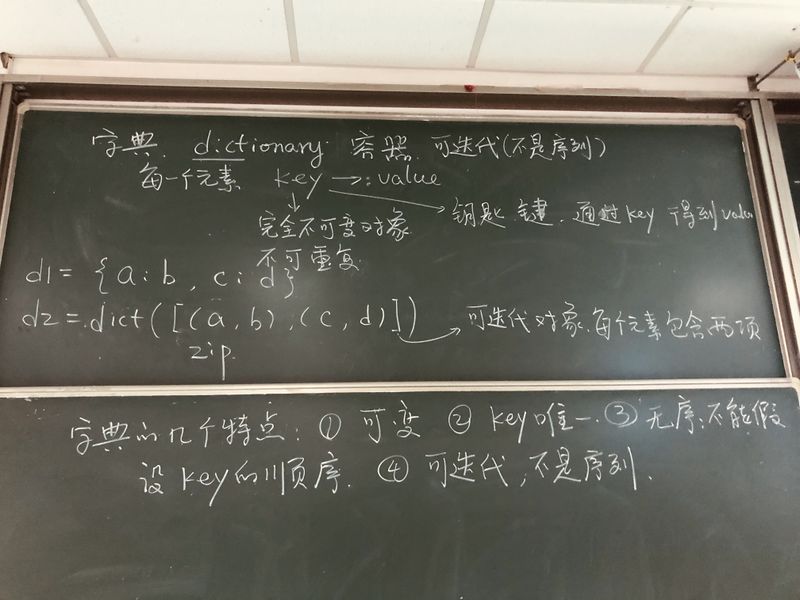 字典 dictionary 容器 可迭代(不是序列)
每一个元素 key → : value
完全不可变对象 钥匙 键, 通过key 得到value
不可重复
d1 = {a : b , c : d}
d2 = dict([(a, b), (c, d)]) 可迭代对象, 每个元素包含两项
zip
字典的几个特点: ① 可变 ② key唯一. ③ 无序, 不能假
设key的顺序. ④ 可迭代, 不是序列.